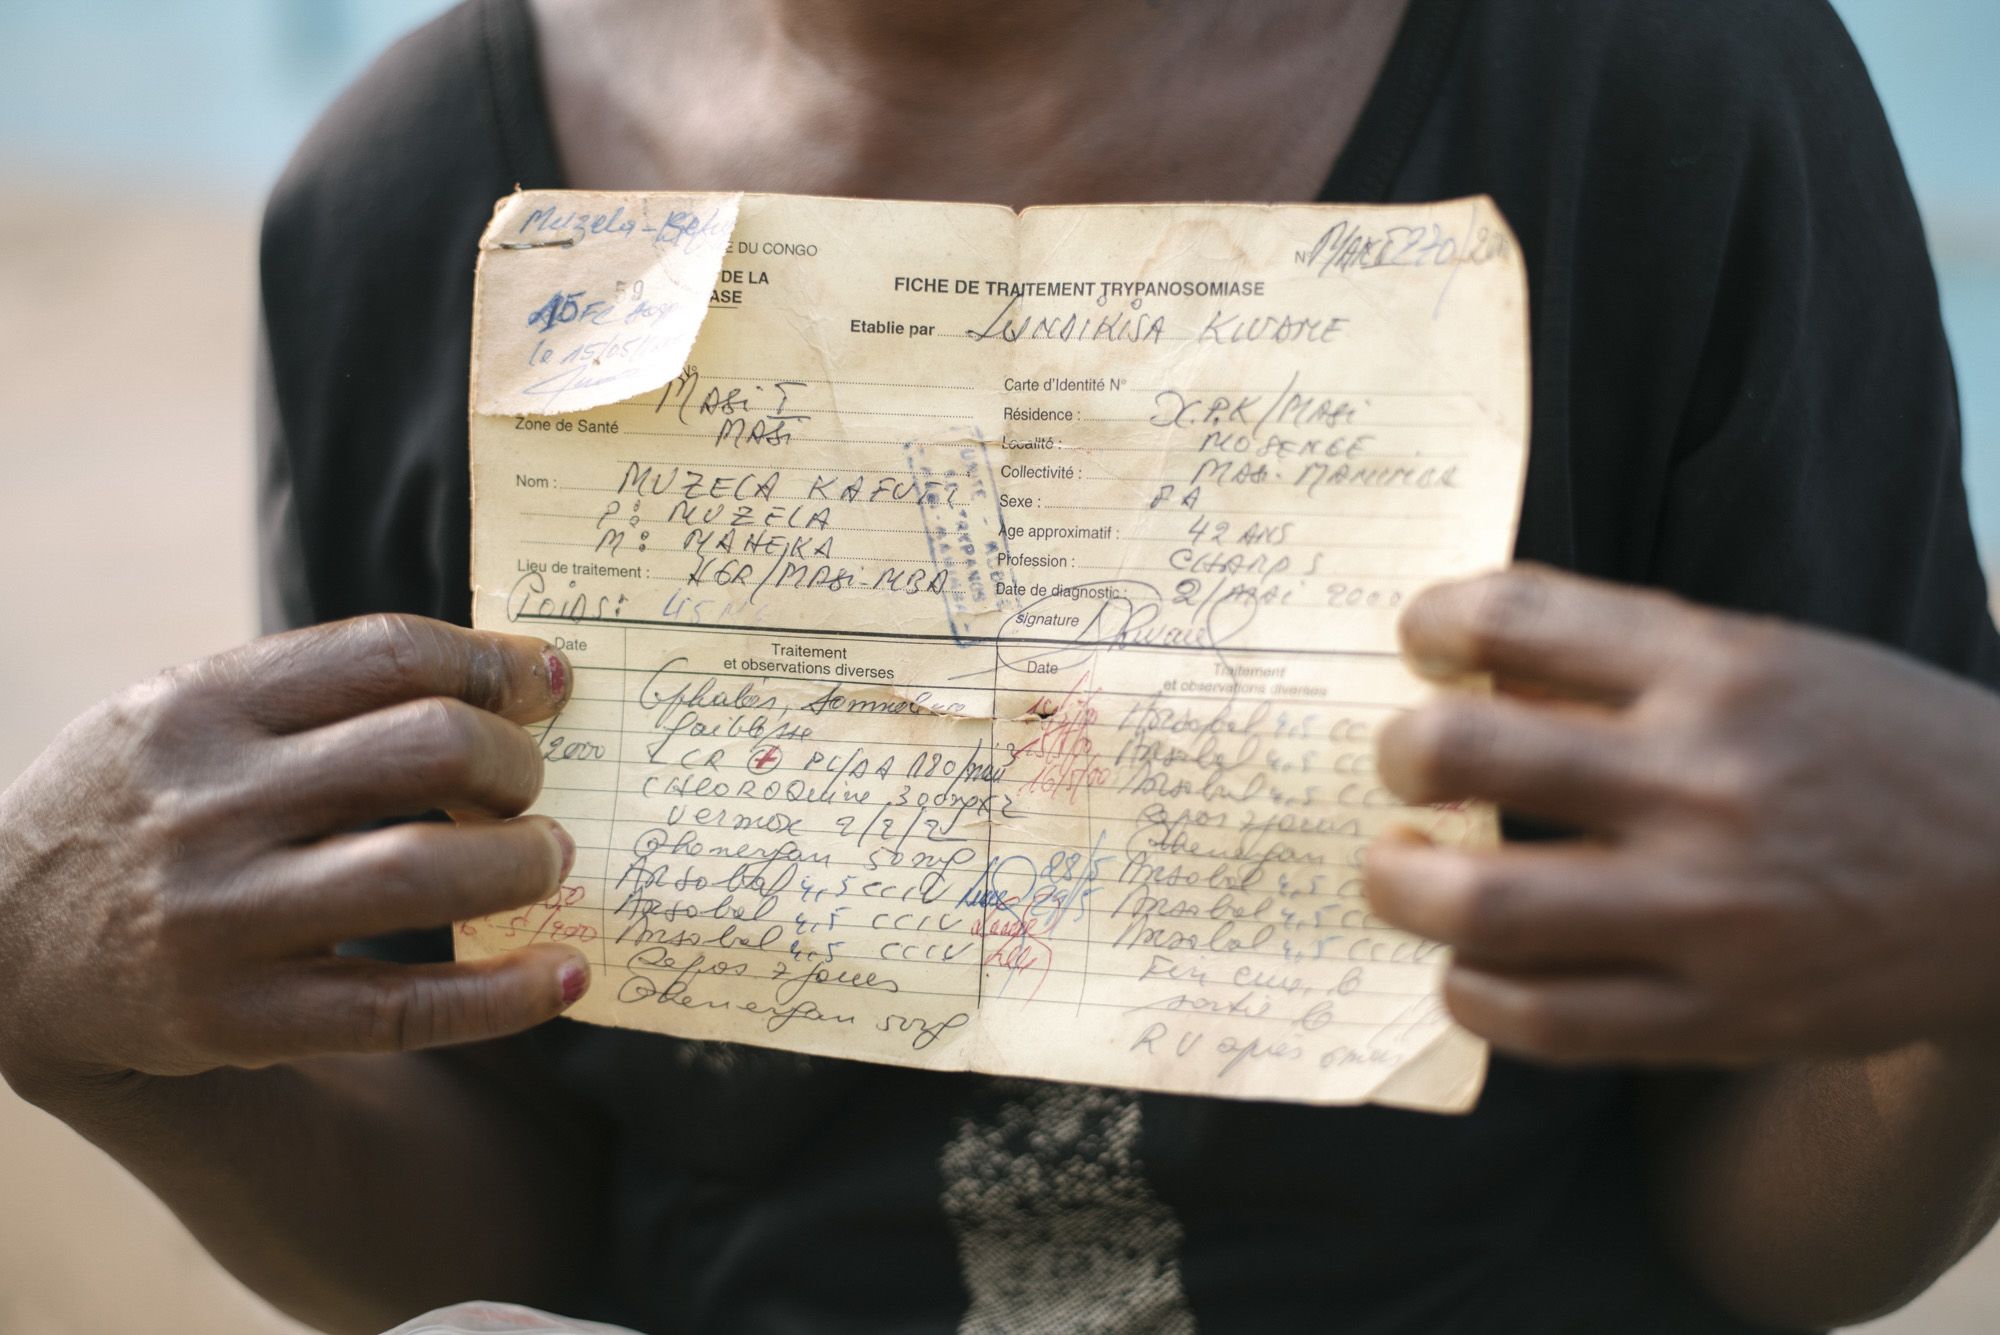 Muzela-
E DU CONGO
N°
DE LA
ASE
59
FICHE DE TRAITEMENT TRYPANOSOMIASE
15 FC
le 15/05/
Etablie par LUNDIKISA KWAME
N°
MASI I
Carte d'Identité N°
Zone de Santé MASI
Résidence : X.P.K/MASI
Localité : MOSENGE
Collectivité : MASI-MANIMBA
Nom : MUZELA KAFUTI
Sexe : FA
P : MUZELA
Age approximatif : 42 ANS
M : MAHEKA
Profession : CHAMPS
Lieu de traitement : HGR/MASI-MBA
Date de diagnostic : 2/MAI 2000
Poids : 45
signature
UNITE - MOBILE
Date
Traitement
et observations diverses
Céphalés, somnolence
faiblesse
/2000
LCR + PL/AA 180/
CHLOROQUINE 300mg x 2
Vermox 2/2/2
Phenergan 50mg
Arsobal 4,5 CC IV
Arsobal 4,5 CC IV
5/2000
Arsobal 4,5 CC IV
Repos 7 jours
Phenergan 50mg
Date
Traitement
et observations diverses
Arsobal 4,5 CC
Arsobal 4,5 CC
16/5/00
Arsobal 4,5 CC
Repos 7 jours
Phenergan
28/5
Arsobal 4,5 CC
29/5
Arsobal 4,5 CC
Arsobal 4,5 CC IV
Fin cure
sortie
RV après 6 mois